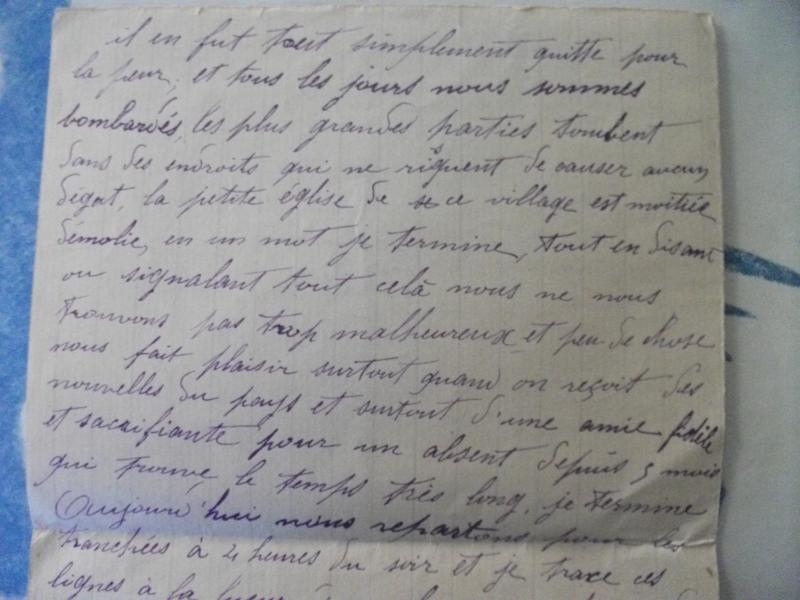 il en fut tout simplement quitte pour
la peur, et tous les jours nous sommes
bombardés, les plus grandes parties tombent
dans des endroits qui ne risquent de causer aucun
dégat, la petite église de ce village est moitiée
démolie, en un mot je termine, tout en disant
ou signalant tout celà nous ne nous
trouvons pas trop malheureux et peu de chose
nous fait plaisir surtout quand on reçoit des
nouvelles du pays et surtout d'une amie fidèle
et sacrifiante pour un absent depuis 5 mois
qui trouve le temps très long, je termine
Aujourd'hui nous repartons pour les
tranchées à 4 heures du soir et je trace ces
lignes à la lueur